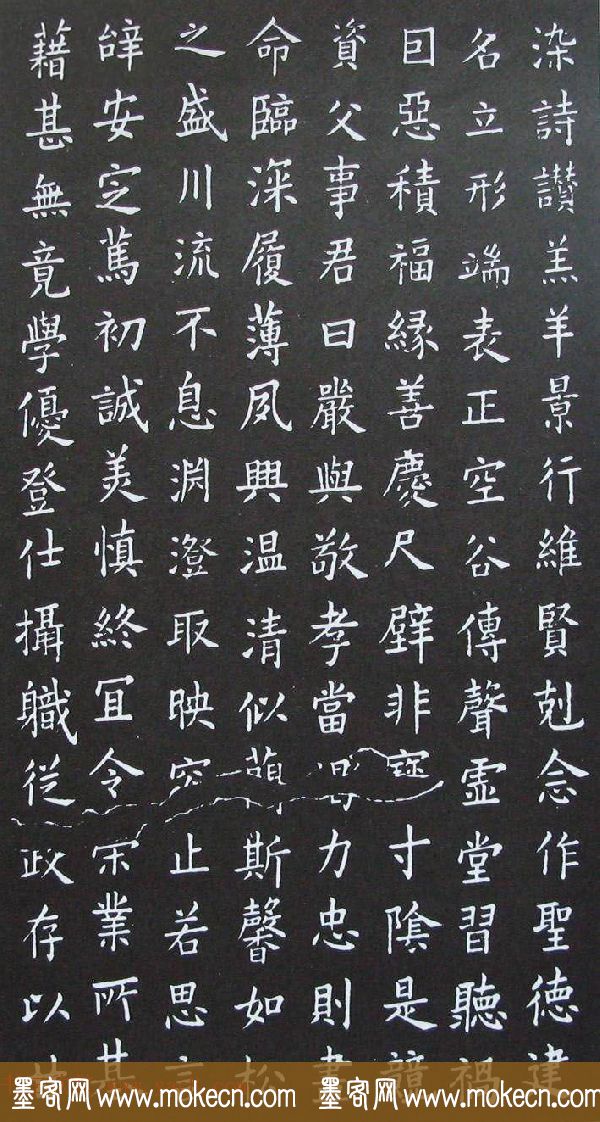 染詩讃羔羊景行維賢剋念作聖德建
名立形端表正空谷傳聲虛堂習聽禍
因惡積福緣善慶尺璧非寶寸陰是競
資父事君曰嚴與敬孝當竭力忠則盡
命臨深履薄夙興溫清似蘭斯馨如松
之盛川流不息淵澄取映容止若思言
辝安定篤初誠美慎終宜令榮業所基
藉甚無竟學優登仕攝職從政存以
墨客网 www.mokecn.com 墨客网 www.mokecn.com